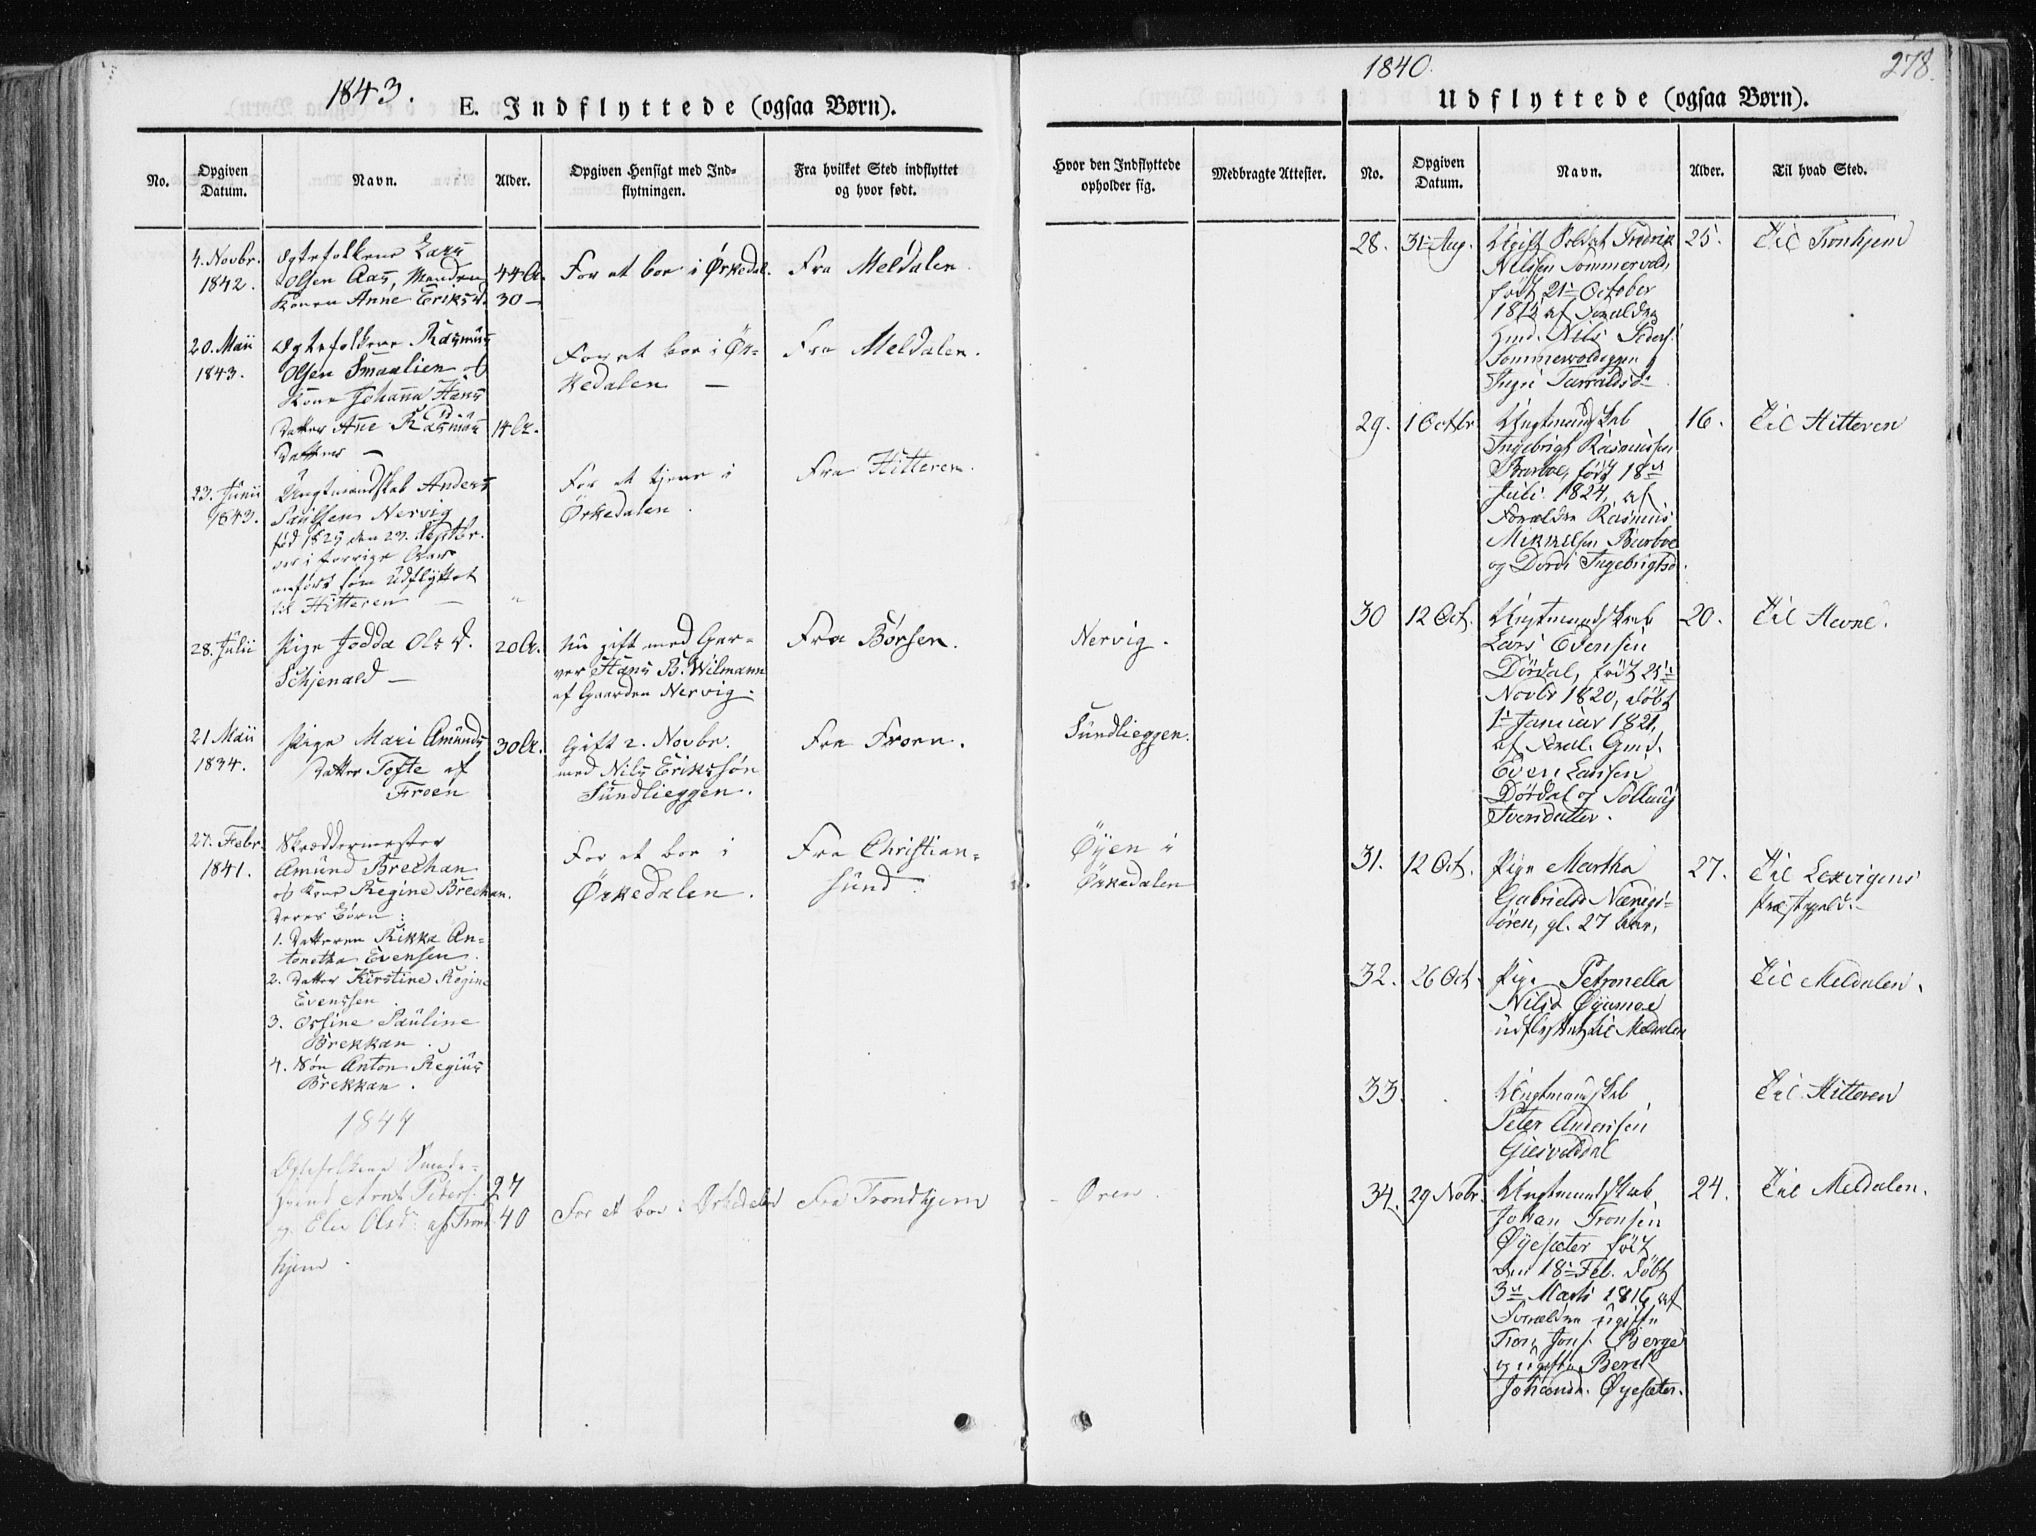 1843.
E. Indflyttede (ogsaa Børn).
No.
Opgiven
Datum.
Navn.
Alder.
Opgiven Hensigt med Ind-
flytningen.
Fra hvilket Sted indflyttet
og hvor født.
4. Novbr.
1842.
Ægtefolkene Lars
Olsen Aas, Manden
Konen Anne Eriksd.
44 Ar.
30 —
For at boe i Ørkedal.
Fra Meldalen.
20. Maii
1843.
Ægtefolkene Rasmus
Olsen Smaalien
Kone Johanna Hans
Datter Ane Rasmus
Datter —
14 Ar.
For at boe i Ør-
kedalen —
Fra Meldalen.
23. Junii
1843.
Ungtmandskab Anders
Paulsen Nervig
fød 1825 den 23. Septbr.
var i forrige Aar
anført som Udflyttet
til Hitteren —
For at tjene i
Ørkedalen.
Fra Hitteren.
28. Julii
Pige Jodda Ols D.
Schjenald —
20 Ar.
Nu gift med Gar-
ver Hans B. Wilmann
af Gaarden Nervig.
Fra Børsen.
21 Maii
1834.
Pige Mari Amunds
Datter Tofte af
Froen
30 Ar.
Gift 2. Novbr.
med Nils Erikssøn
Sundlieggen.
Fra Froen.
27. Febr.
1841.
Skræddermester
Amund Brechan
og Kone Regine Brechan.
deres Børn:
1. Datteren Rikka An-
tonetha Evensen.
2. Datter Kirstine Regine
Evenssen.
3. Ossine Pauline
Brekkan.
4. Søn Anton Regius
Brekkan.
For at boe i
Ørkedalen.
Fra Christian-
sund.
1844
Ægtefolkene Smeds-
Svend Arnt Peders.
og Eli Olsd: af Trond-
hjem.
27
40
For at boe i Ørkedalen
Fra Trondhjem
1840.
278.
Hvor den Indflyttede
opholder sig.
Medbragte Attester.
Nervig.
Sundlieggen.
Øyen i
Ørkedalen
Øren.
Udflyttede (ogsaa Børn).
No.
Opgiven
Datum.
Navn.
Alder.
Til hvad Sted.
28.
31 Aug.
Ugift Soldat Fredrik
Nilssen Sommervold,
født 21 October
af Forældre
Gmd. Nils Peders.
Sommervoldeggen
Ingri Tarraldsd:
25.
Til Tronhjem
29.
1 Octbr
Ungtmandskab
Ingebrigt Rasmussen
Barboe, født 18
Juli 1824, af
Forældre Rasmus
Mikkelsen Barboe
og Dordi Ingebrigtsd.
16.
Til Hitteren
30
12 Oct.
Ungtmandskab
Lars Evensen
Dørdal, født 25
Novbr 1820, døbt
1 Januar 1821,
af Foræl. Gmd.
Even Larsen
Dørdal og Solloug
Iversdatter.
20.
Til Hevne.
31.
12 Oct.
Pige Martha
Gabrielsd Nærvigs-
øren, gl. 27 Aar,
27.
Til Lexvigens
Præstegield.
32.
26 Oct
Pige Petronella
Nilsd Øyamoe
udflyttet til Meldalen
Til Meldalen.
33.
Ungtmandskab
Peter Andersen
Giesvolddal
Til Hitteren
34.
29 Nobr.
Ungtmandskab
Johan Tronsen
Øyesæter født
den 18 Feb. døbt
3 Marts 1816 af
Forældre ugifte
Tron Jons. Bjerge
og ugifte Berit
Johansd. Øyesæter.
24.
Til Meldalen.